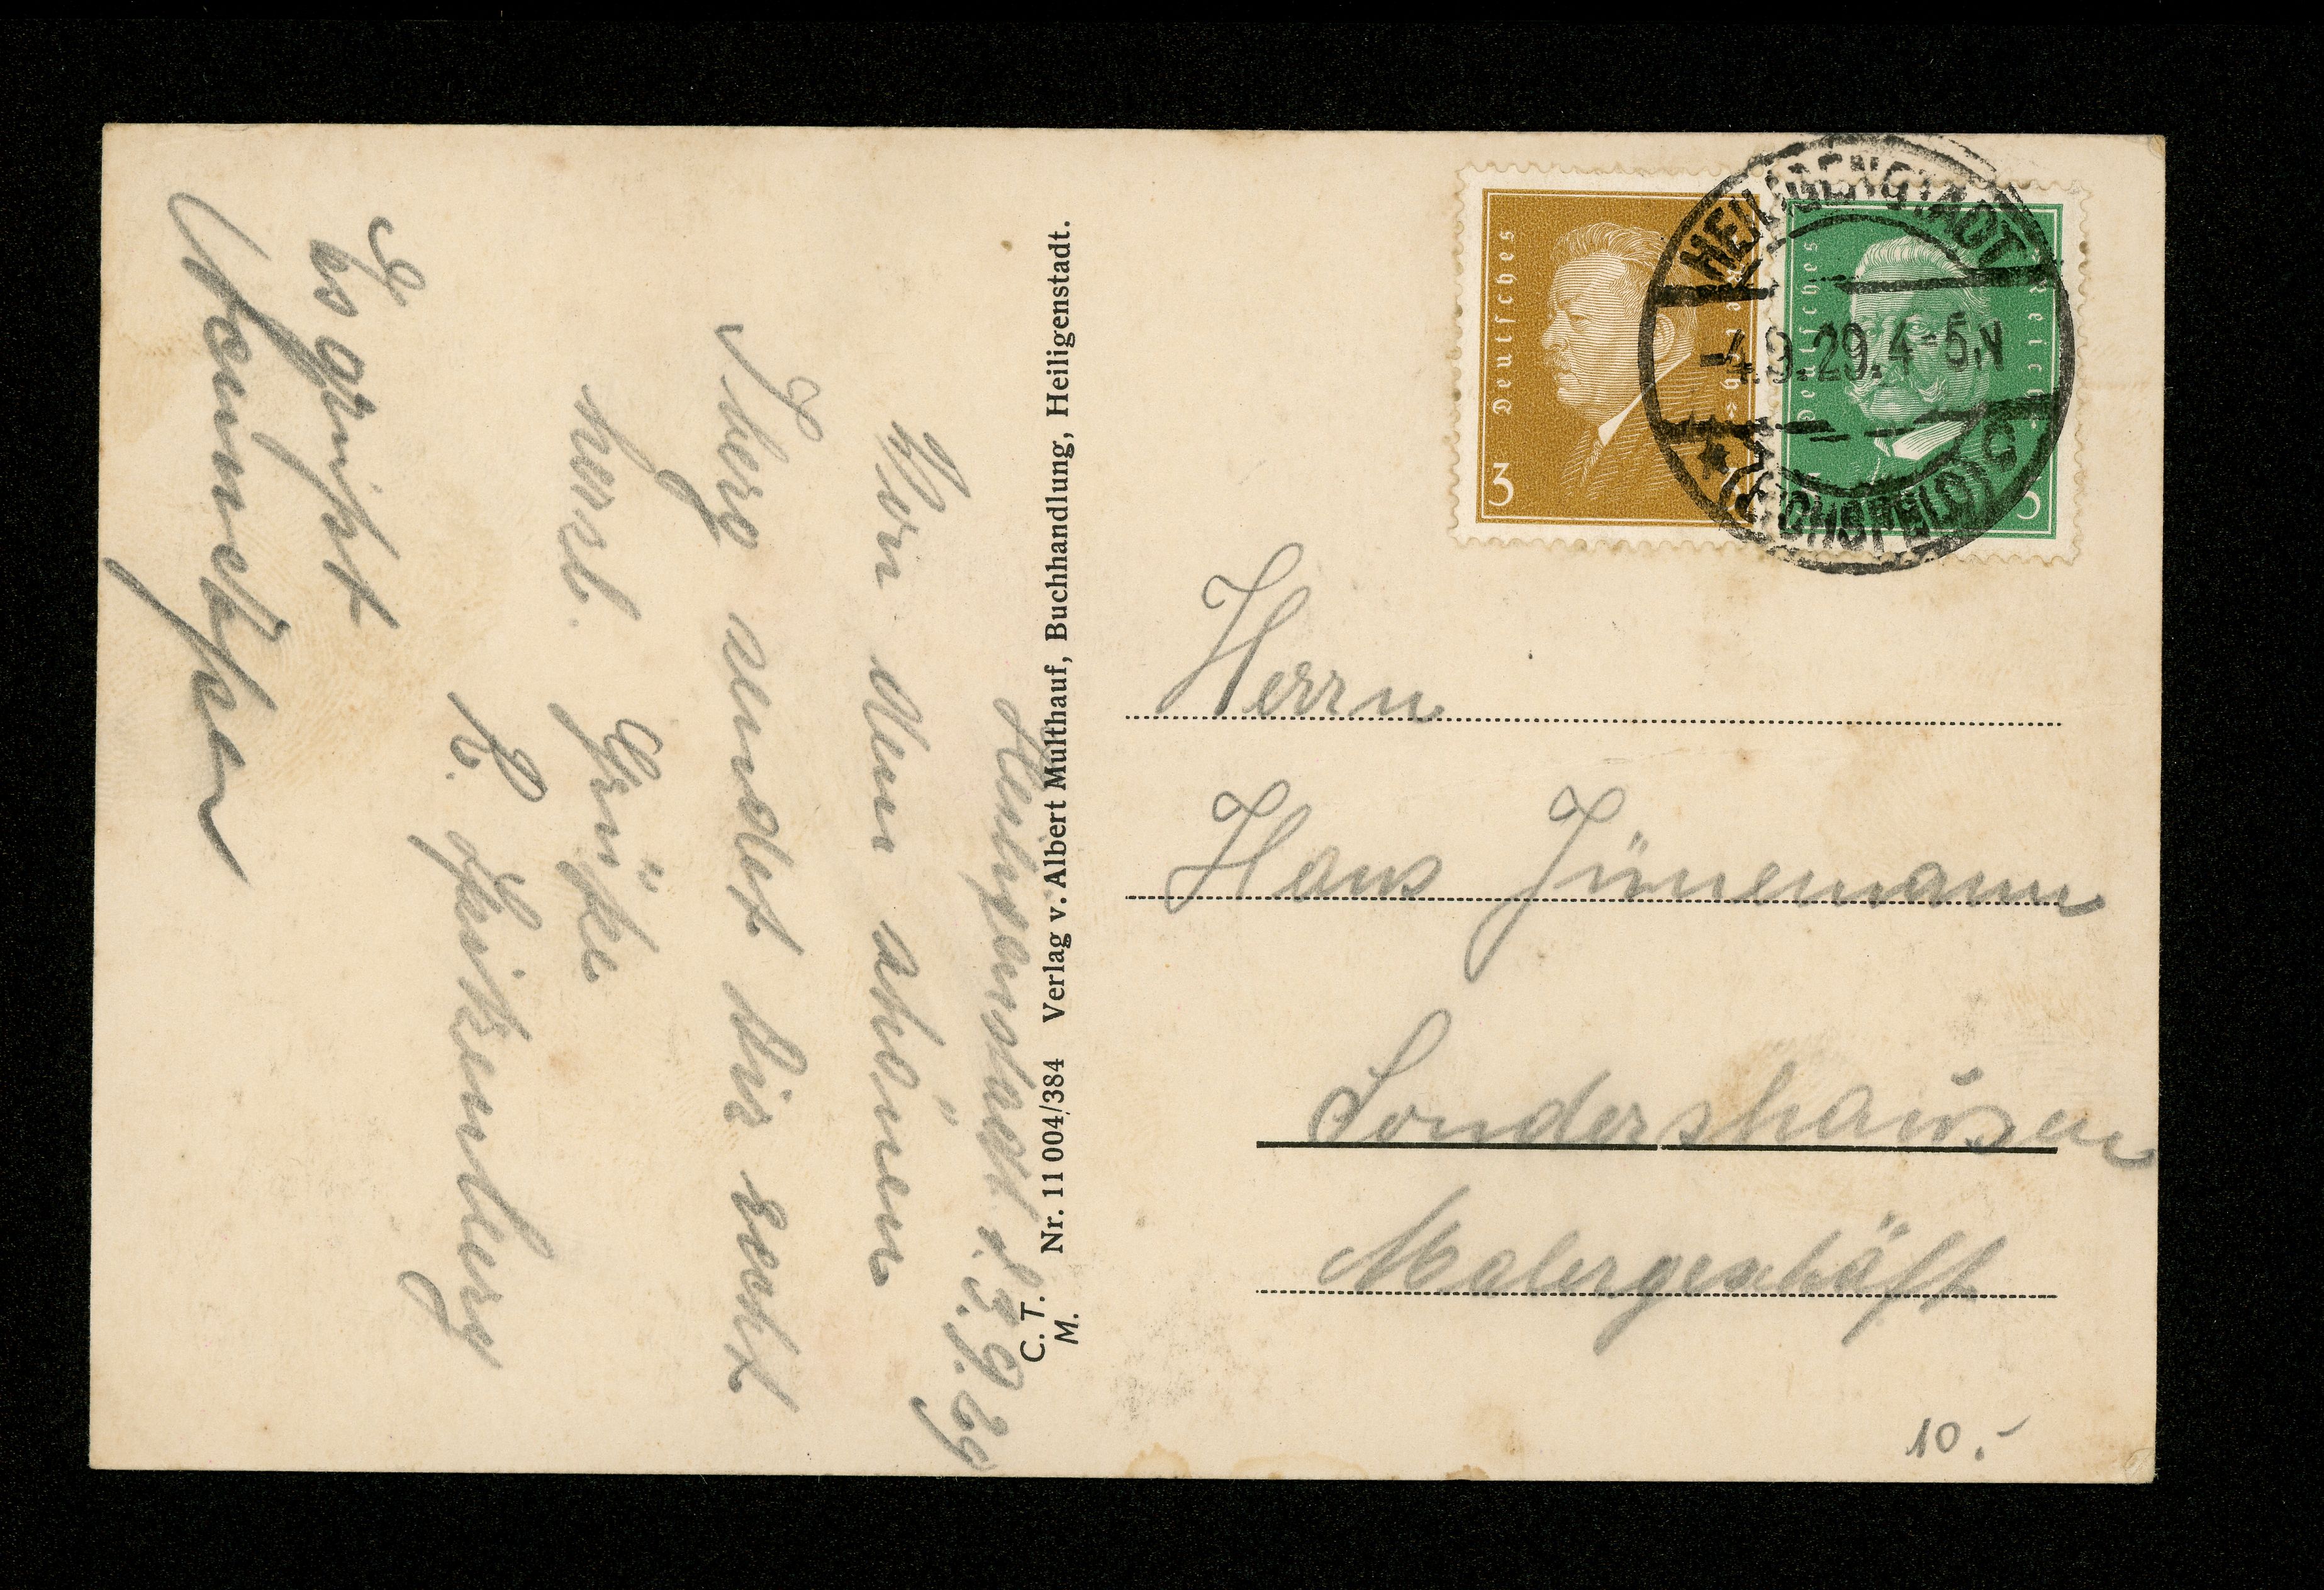 Heiligenstadt d. 3.9.29
Von dem schönen
Iberg sendet Dir recht
herzl. Grüße
R.
Es grüßt
Nr. 11 004/384 Verlag v. Albert Multhauf, Buchhandlung, Heiligenstadt.
C. T.
M.
Deutsches Reich
3
Deutsches Reich
5
HEILIGENSTADT
-4.9.29.4-5.N
* (EICHSFELD) c
Herrn
Hans Jünemann
Sondershausen
Malergeschäft
10.-